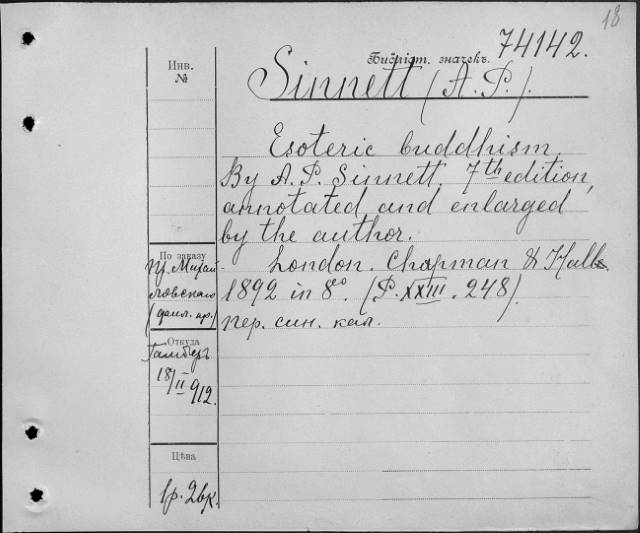 18
74142.
Библіот. значекъ.
Инв.
№
Sinnett (A. P.).
Esoteric buddhism.
By A. P. Sinnett. 7th edition,
annotated and enlarged
by the author.
London. Chapman & Hall.
1892 in 8°. (P. XXIII. 248).
пер. син. кал.
По заказу
пр. Михай-
ловскаго
Откуда
18/II 912.
Цѣна
1р. 26к.